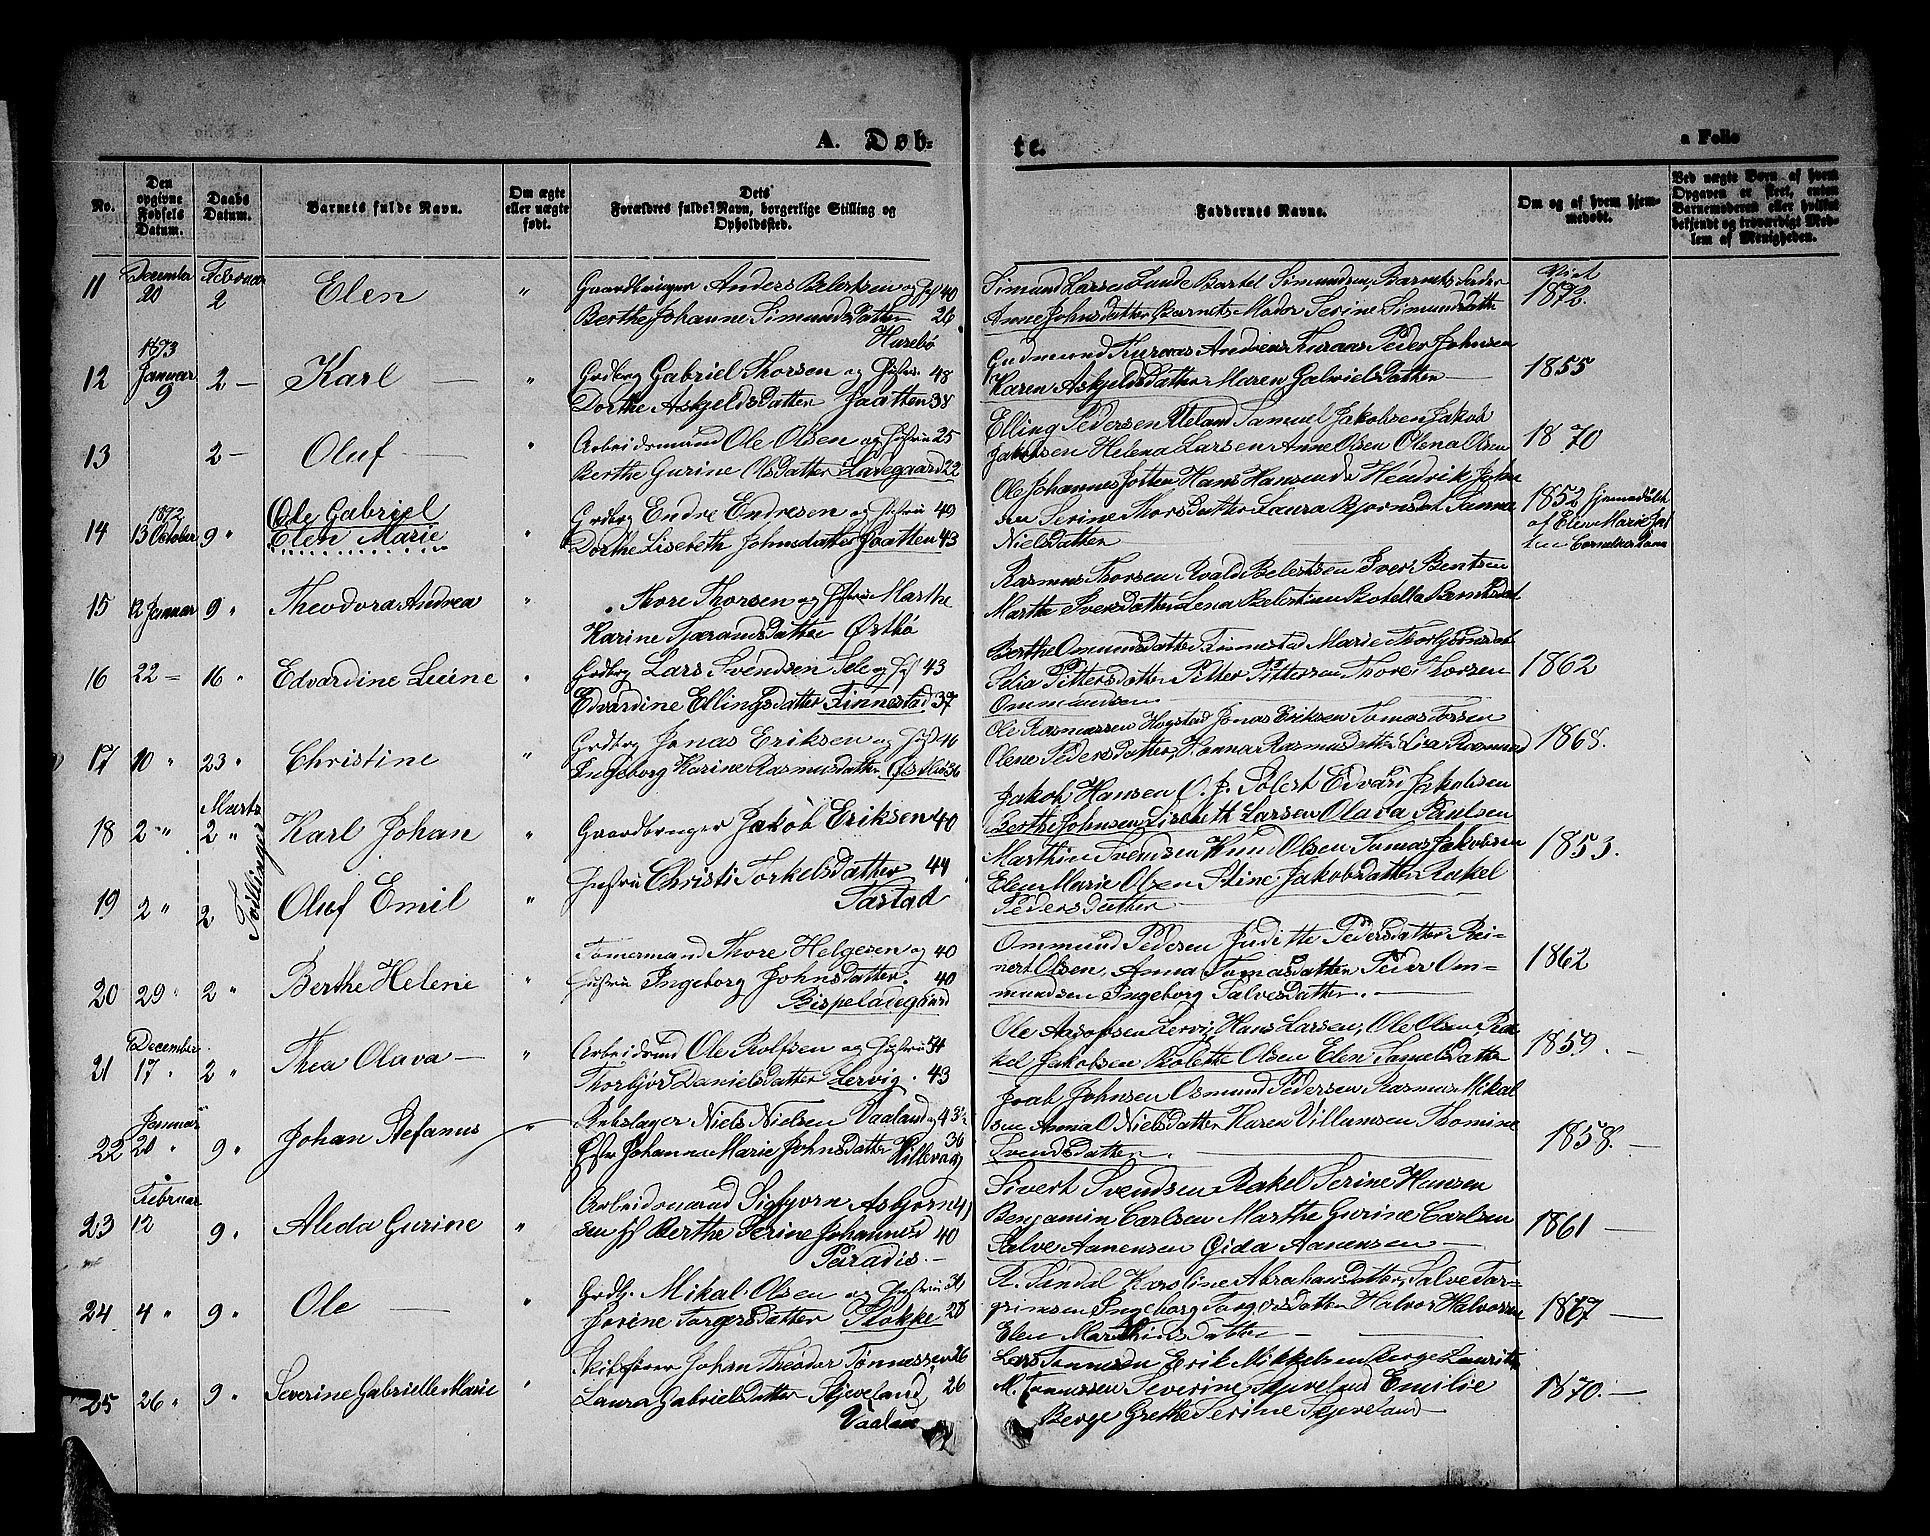 A. Døb-
te.
a Folio
No.
Den opgivne Fødsels Datum.
Daabs Datum.
Barnets fulde Navn.
Om ægte eller uægte født.
Dets Forældres fulde Navn, borgerlige Stilling og Opholdssted.
Faddernes Navne.
Om og af hvem hjemmedøbt.
Ved uægte Børn af hvem Opgaven er sket, enten Barnemoderen eller hvilket bekjendt og troværdigt Medlem af Menigheden.
11 December 20 Februar 2 Elen "
Gaardbruger Anders Belestsen og Hst 40
Berthe Johanne Simunds Datter 26
Husebø
Simund Larsen Sande Bartel Simundsen, Barnets Fader
Anne Johnsdatter Barnets Moder Serine Simunds Datter
1872.
12 1873 Januar 9 2 — Karl — "
Grdbrg Gabriel Thorsen og Hustru 48
Dorthe Askjelds Datter Jaatten 38
Gudmund Andreas Peder Johnsen
Karen Askjelds Datter Maren Gabriels Datter
1855
13 2 — Oluf — "
Arbeidsmand Ole Olsen og Hustru 25
Berthe Gurine Ols Datter Ladegaard 22
Elling Pedersen Samuel Jakobsen Jakob
Jakobsen Helena Larsen Anne Olsen Olena Olsen
1870
14 1872 13 October 9 " Ole Gabriel
Elen Marie "
Grdbrg Endre Endresen og Hustru 49
Dorthe Lisebeth Johnsdatter Jaatten 43
Ole Johannes Jotten Hans Hansen Hendrik John
sen Serine Thors Datter Laura Bjornsdat Sanna
Niels Datter
1852 hjemmedøbt
af Elen Marie
15 12 Januar 9 " Theodora Andrea "
Thore Thorsen og Hustru Marthe
Karine Tjærands Datter Østbø
Rasmus Thorsen Roald Belestsen Iver Bentsen
Marthe Ivers Datter Lena Belestsen
16 22 = 16 " Edvardine "
Grdbrg Lars Svendsen Sele og Hst 43
Edvardine Ellings Datter Finnestad 37
Berthe Ommunds Datter Finnestad Marie Thorbjørnsdat
Pitters Datter Pitter Pittersen Thore Thorsen
Ommundsen
1862
17 10 " 23 " Christine "
Grdbrg Jonas Eriksen og Hst 46
Ingeborg Karine Rasmusdatter 36
Ole Rasmussen Hogstad Jonas Eriksen Tomas Torsen
Olene Peders Datter, Hanna Rasmus Datter, Lisa Rasmus
1868.
18 2 " Marts 2 " Karl Johan "
Gaardbruger Jakob Eriksen 40
Jakob Hansen O. J. Edvard Jakobsen
Berthe Johnsen Lisebeth Larsen Olava Paulsen
Tvillinger
19 2 " 2 Oluf Emil "
Hustru Christi Torkels Datter 44
Tastad
Marthin Svendsen Knud Olsen Tomas Jakobsen
Elen Marie Olsen Stine Jakobs Datter Rakel
Peders Datter
1853.
20 29 " 2 " Berthe Helene "
Tømermand Thore Helgesen og 40
Hustru Ingeborg Johns Datter. 40
Bispeladegaard
Ommund Pedersen Juditte Peders Datter Rei-
nert Olsen, Anna Tomas Datter Peder Om-
mundsen Ingeborg Salves Datter. —
1862
21 December 17 " 2 " Thea Olava — "
Arbeidsmd Ole Rolfsen og Hustru 54
Thorbjør Daniels Datter Lervig. 43
Ole Lervig Hans Larsen, Ole Olsen Ra
kel Jakobsen Bolette Olsen Elen Samuels Datter
1859. —
22 Januar 20 " 9 " Johan Stefanus "
Niels Nielsen Vaaland og 43
Johanne Marie Johns Datter Hillevaag 36
Joab Johnsen Osmund Pedersen Rasmus Mikal
sen Anna O Niels Datter Karen Villumsen Thomine
Svends Datter.
1858. —
23 Februar 12 9 " Aleda Gurine "
Arbeidsmand Sigbjorn Asbjørn 41
sen Hst Berthe Serine Johannesd 40
Paradis. —
Sivert Svendsen Rakel Serine Hansen
Benjamin Carlsen Marthe Gurine Carlsen
Salve Aanensen Gida Aanensen —
1861 —
24 4 " 9 " Ole — "
Grdb. Mikal Olsen og Hustru 36
Jorine Torgers Datter Stokke 28
Karoline Abrahams Datter, Salve Tar-
grimsen Ingeborg Torgers Datter Halvor Halvorsen
Elen Marthins Datter —
1867 —
25 26 " 9 " Severine Gabrielle Marie "
Skibsfører Johan Theodor Tønnessen 26
Laura Gabriels Datter Skjæveland 26
Vaaland
Lars Tønnesen Erik Mikkelsen Berge Laurits
M. Tønnessen Severine Skjeveland Emilie
Berge Grethe Serine Skjeveland —
1870. —